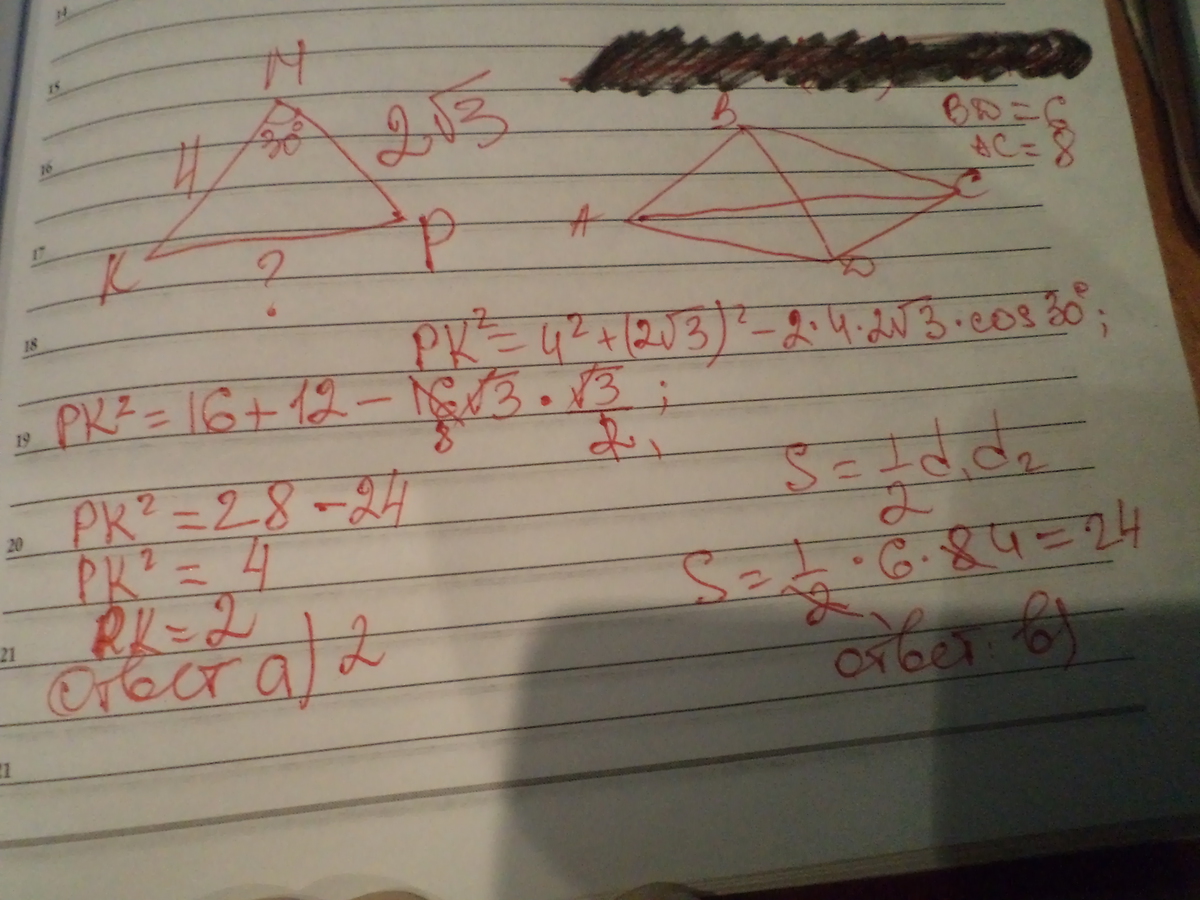 14
15
16
17
18
19
20
21
21
M
4
30°
2√3
K
P
?
B
A
C
D
BD = 6
AC = 8
PK² = 4² + (2√3)² - 2·4·2√3·cos 30°;
PK² = 16 + 12 - 16√3 · √3/2;
8
PK² = 28 - 24
PK² = 4
PK = 2
Ответ а) 2
S = 1/2 d₁ d₂
S = 1/2 · 6 · 8 4 = 24
ответ: в)